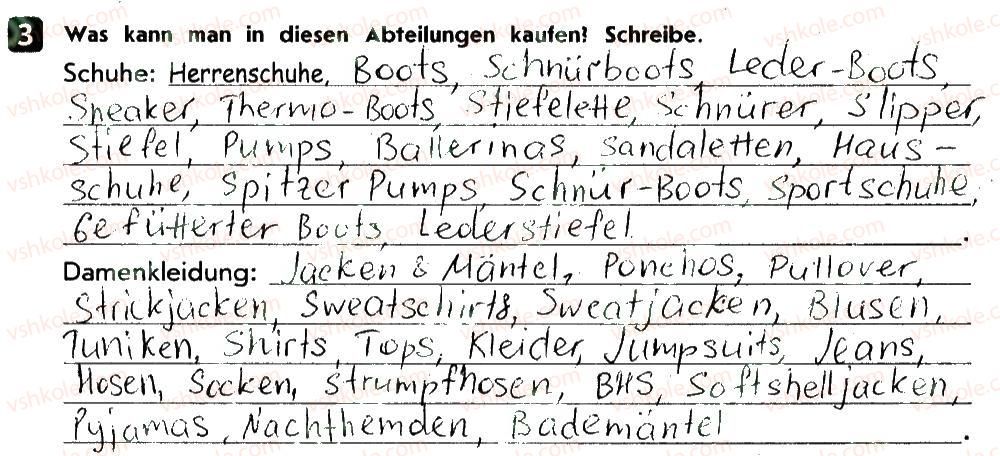 3 Was kann man in diesen Abteilungen kaufen? Schreibe.
Schuhe: Herrenschuhe, Boots, Schnürboots, Leder-Boots,
Sneaker, Thermo-Boots, Stiefelette, Schnürer, Slipper,
Stiefel, Pumps, Ballerinas, Sandaletten, Haus-
schuhe, Spitzer Pumps, Schnür-Boots, Sportschuhe,
Gefütterter Boots, Lederstiefel.
Damenkleidung: Jacken & Mäntel, Ponchos, Pullover,
Strickjacken, Sweatschirts, Sweatjacken, Blusen,
Tuniken, Shirts, Tops, Kleider, Jumpsuits, Jeans,
Hosen, Socken, Strumpfhosen, BHS, Softshelljacken,
Pyjamas, Nachthemden, Bademäntel.